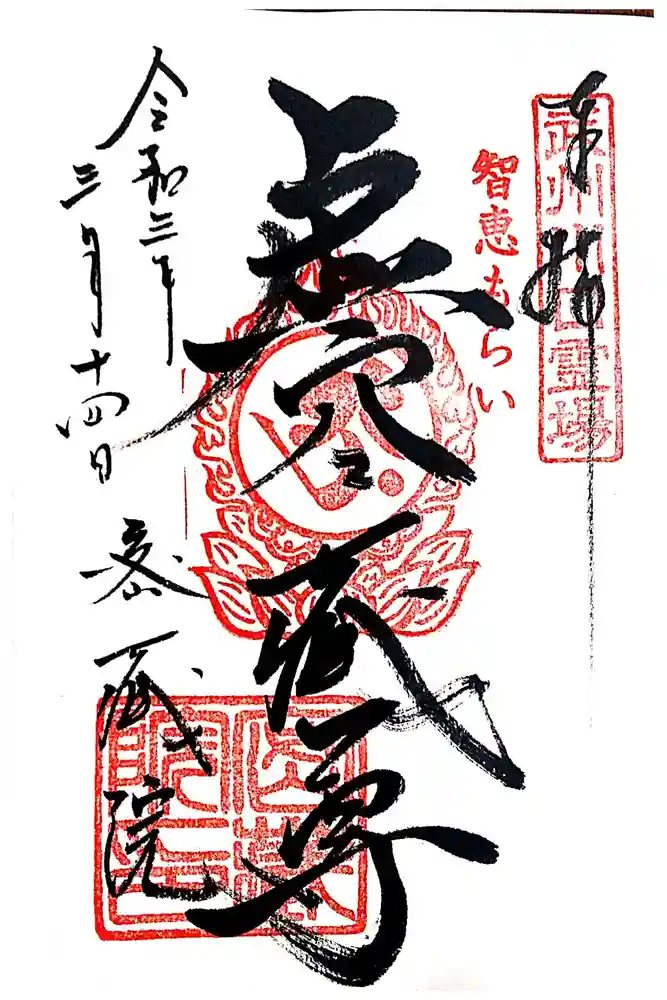 奉拝
武州
霊場
智恵もらい
虚空蔵尊
令和三年
三月十四日
密蔵院